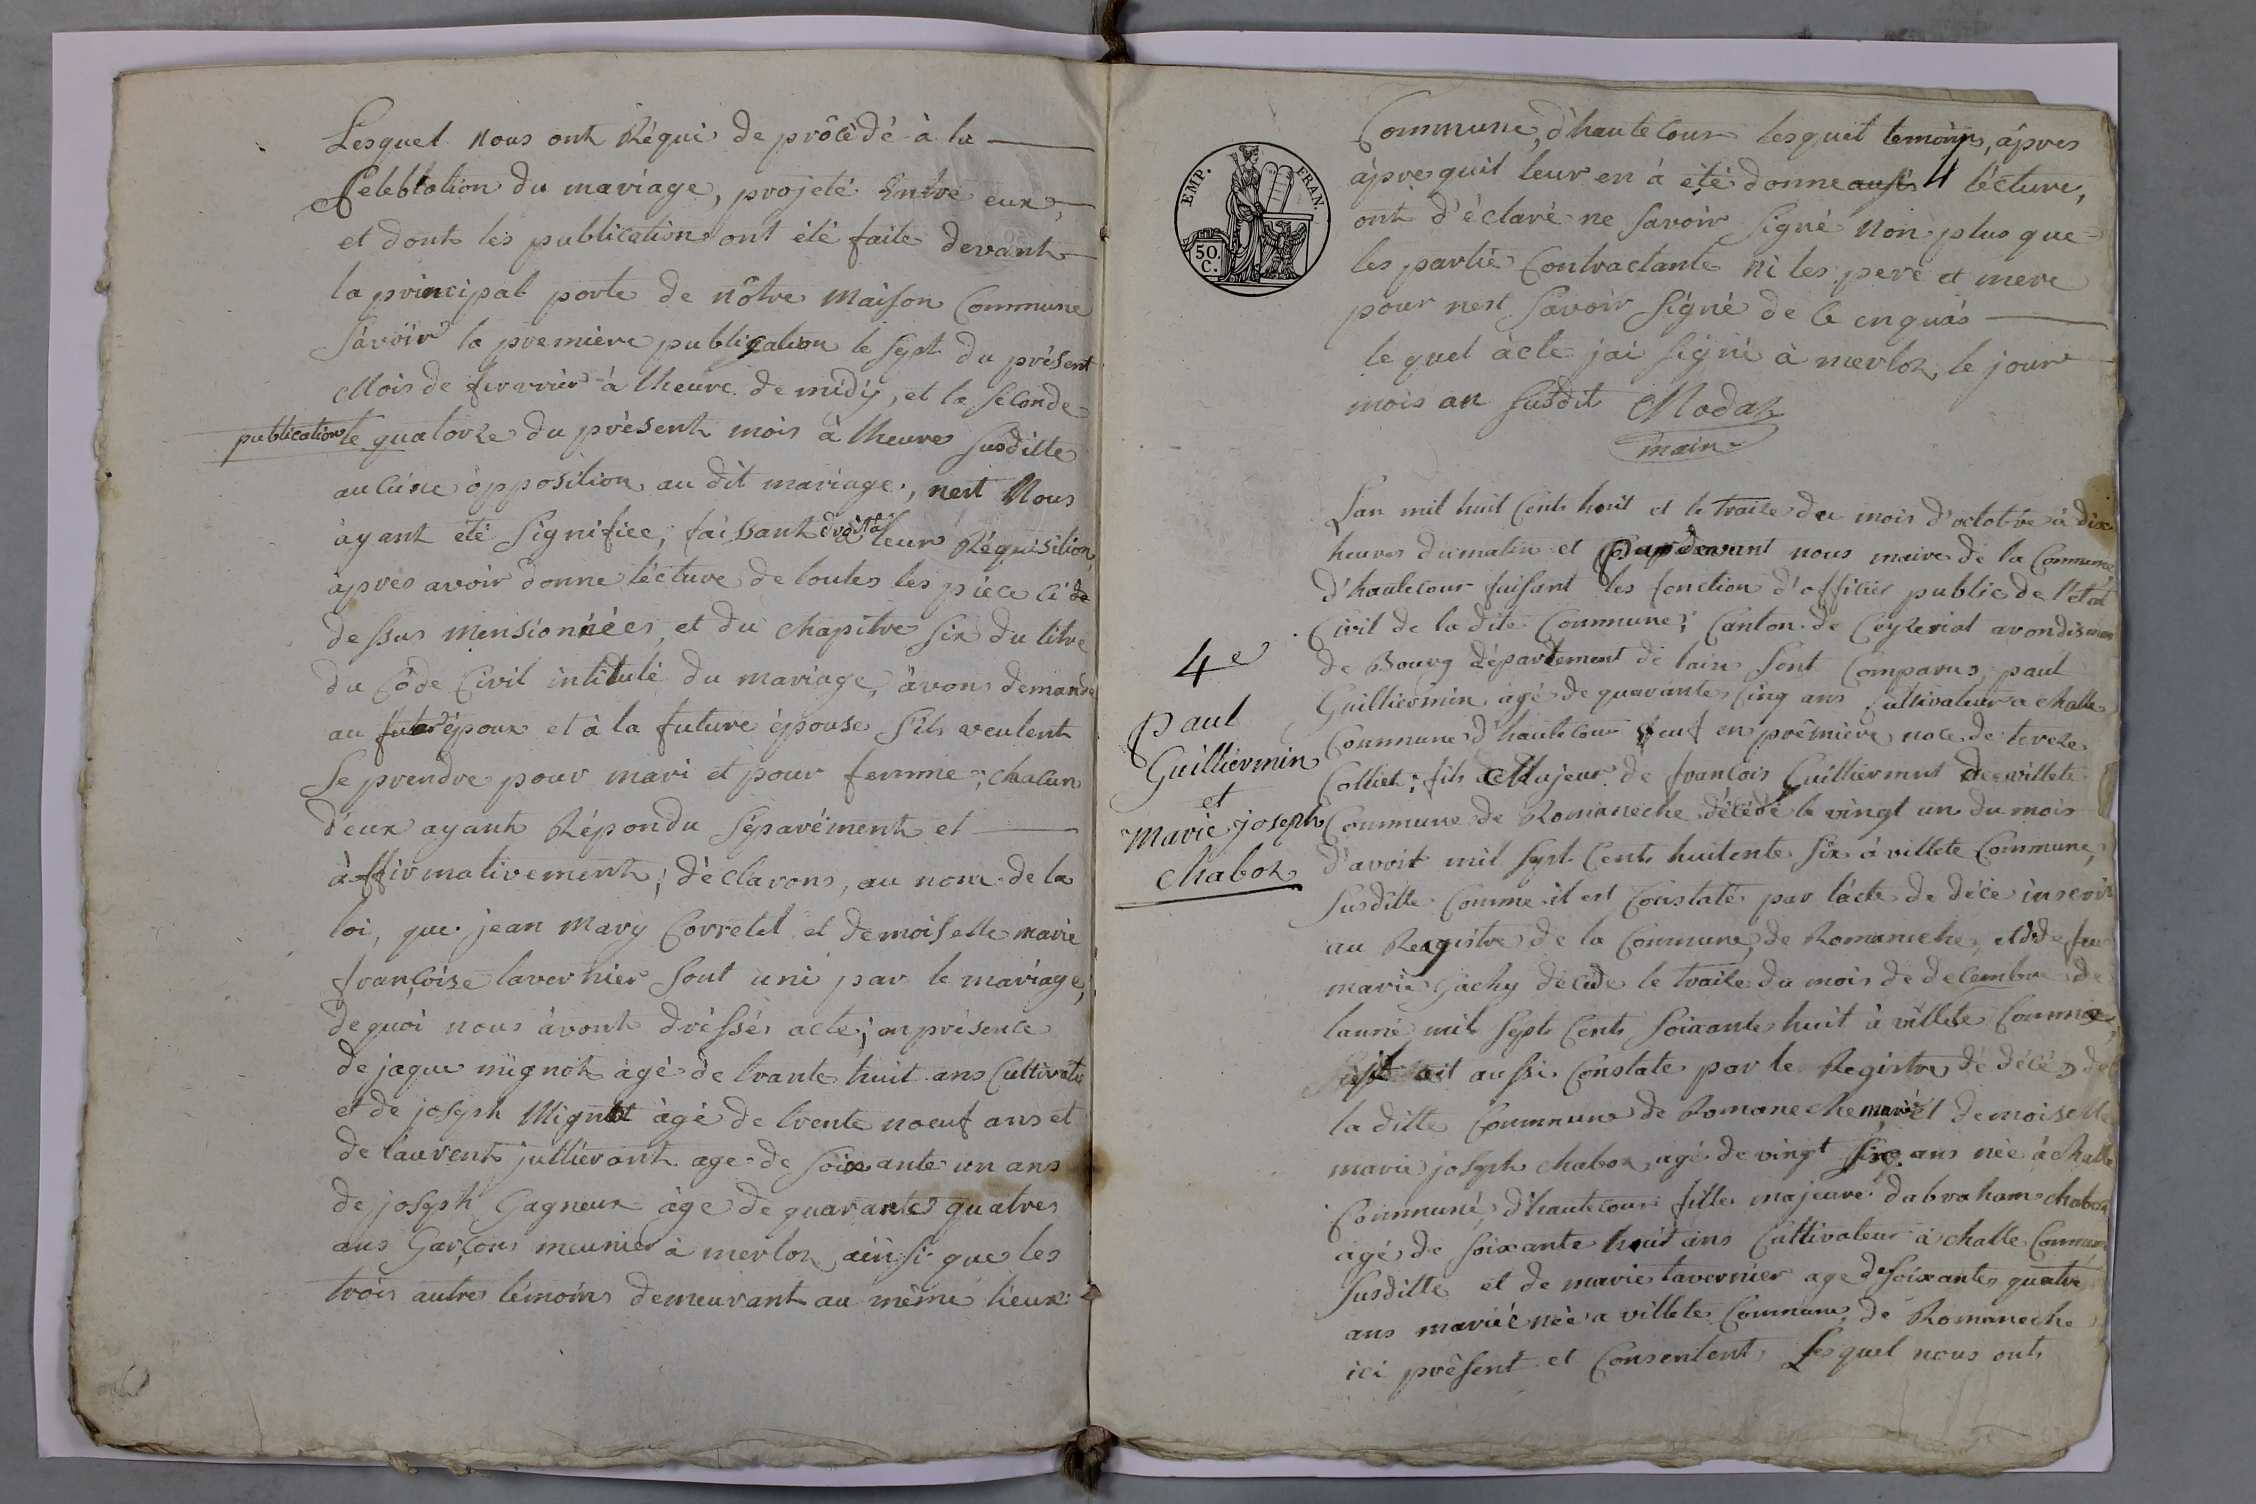 Lesquel nous ont Réqui de procédé à la
Celebration du mariage, projeté Entre eux,
et dont les publication ont été faite devant
la principal porte de nôtre maison Commune
Savoir la première publication le sept du présent
Mois de fevrrier à lheure de midy, et la seconde
publication le quatorze du présent mois à lheure susditte
aucune opposition au dit mariage, nest Nous
ayant été Signifiée, faissant droit à leur Réquisition,
àpres avoir donne lécture de toutes les pièce ci de
dessus mensionnées, et du chapitre six du titre
du Côde Civil intitulé du mariage, àvons demande
au futur époux et à la future épouse s'ils veulent
Se prendre pour mari et pour femme; chacun
d'eux ayant Répondu séparément et
àffirmativement; déclarons, au nom de la
loi, que jean Mary Corretel et demoiselle marie
françoise lavernier sont uni par le mariage,
de quoi nous àvont dressés acte; en présence
de jaque mignot àgé de trante huit ans Cultivate
et de joseph Mignot àgé de trente noeuf ans et
de laurent jullierant age de soixante un ans
de joseph Gagneur àge de quarante quatres
ans Garçons meunier à merloz ainsi que les
trois autres témoins demeurant au même lieux
EMP. FRAN.
50. C.
Commune, d'hautecour lesquel temoins, àpres
àpre quil leur en à été donne aussis 4 lécture,
ont d'éclaré ne savoir Signé Non plus que
les partie Contractante ni les peré et mere
pour nest savoir signé de ce enquàs
le quel àcte jai signé à merloz, le jour
mois an susdit Modaz
main
4e
paul
Guilliermin
et
marie joseph
chaboz
Lan mil huit Cents huit et le traize du mois d'octobre à dix
heures du matin et Par devant nous maire de la Commune
d'hautecour faisant les fonction d'officier public de l'état
Civil de la dite Commune; Canton de Ceyzeriat arondismen
de Bourg département de lain sont Comparus, paul
Guilliermin agé de quarante Cinq ans Cultivateur a challe
Commune d'hautecour feuf en prêmière noce de tereze
Colliet; fils Majeur de françois Guilliermint de villete
Commune de Romaneche décédé le vingt un du mois
d'avoit mil sept Cents huitente six à villete Commune,
susditte Comme il est Constaté par làcte de décè inscrit
au Registre de la Commune de Romaneche, et de feu
marie Gachy decede le traize du mois de decembre de
lanné mil Septs Cents soixante huit à villete Commne,
ait aussi Constate par le Registre dé décés de
la ditte Commune de Romaneche marié et demoiselle
marie joseph chaboz agé de vingt Sinq ans née à challe
Communé, d'hautecour fille majeure dabraham chaboz
agé de soixante huit ans Cultivateur à challe Commune
susditte et de marie tavernier age de soixante quatre
ans mariée née a villete Commune, de Romaneche
ici présent et Consentent Lesquel nous onts